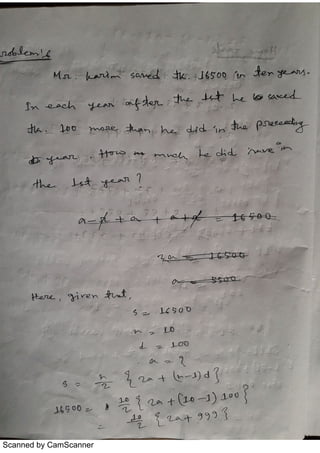 Problem: 6
Mr. karim saved tk. 16500 in ten years.
In each year after the 1st he saved
tk. 100 more than he did in the preceding
year. How much he did save in
the 1st year?
a-d + a + a+d = 16500
3a = 16500
a = 5500
Here, given that,
s = 16500
n = 10
d = 100
a = ?
s = n/2 {2a + (n-1)d}
16500 = 10/2 {2a + (10-1) 100}
= 10/2 {2a + 999}
Scanned by CamScanner